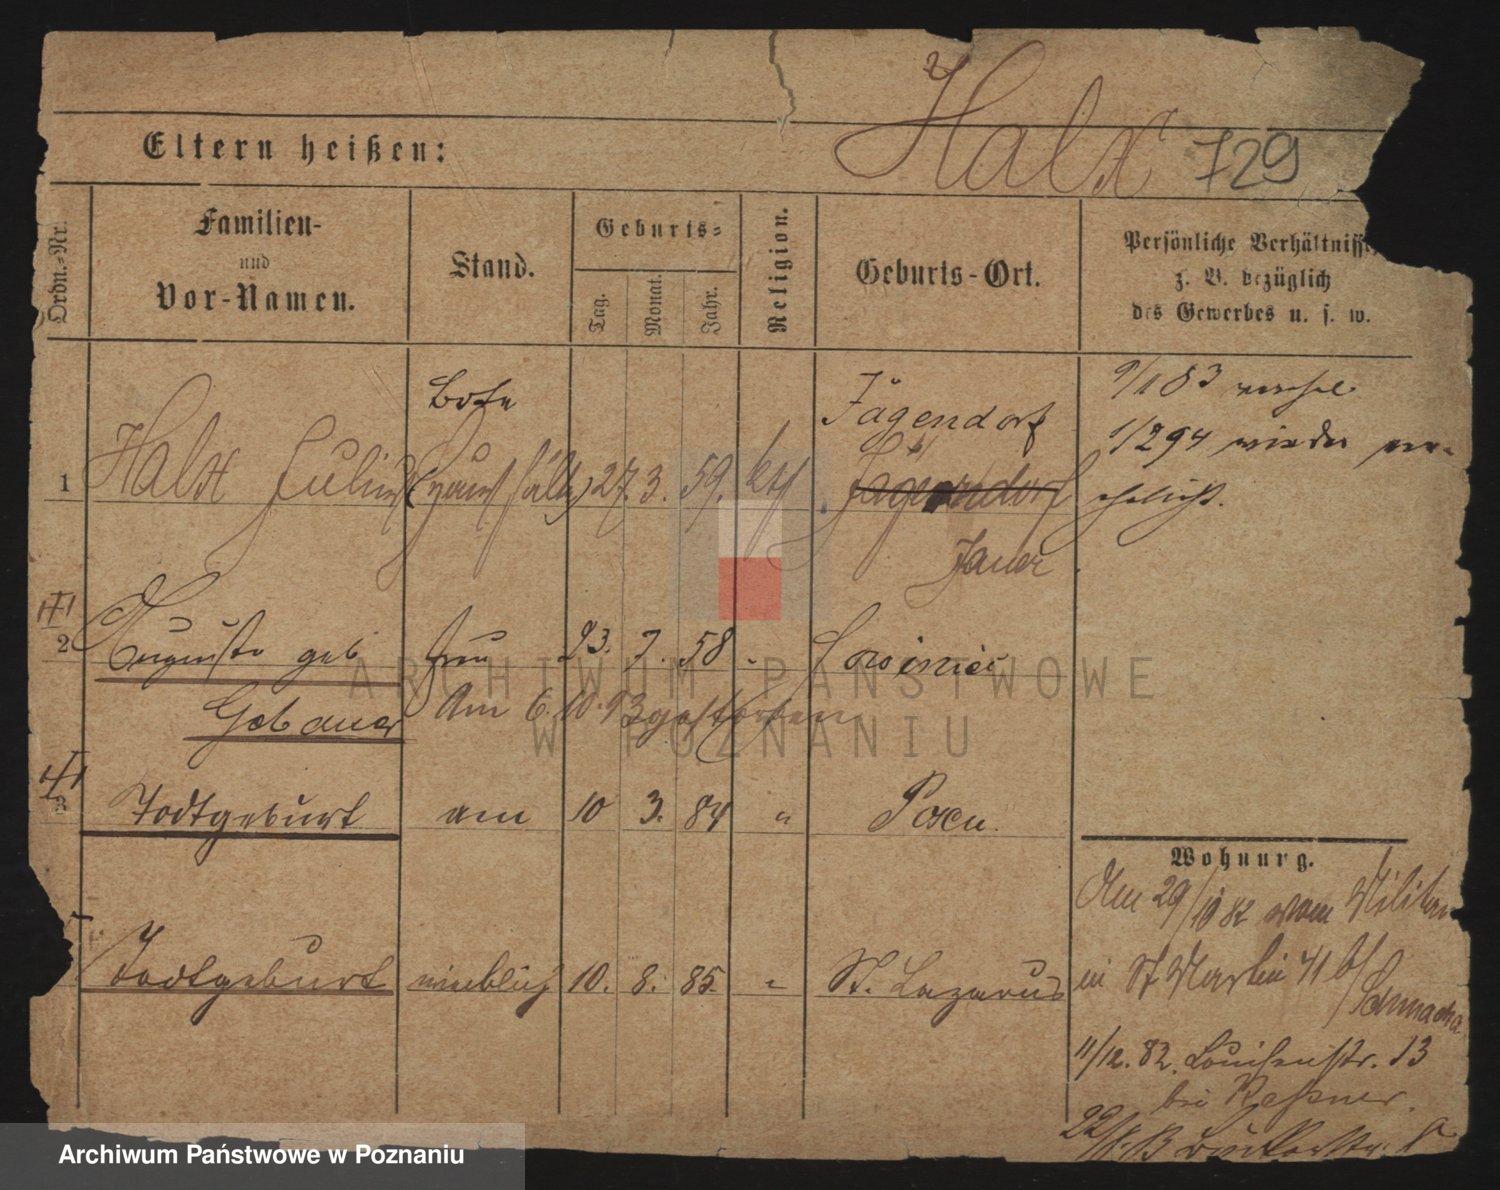 Halx 729
Eltern heißen:
Ordn.-Nr.
Familien-
und
Vor-Namen.
Stand.
Geburts-
Tag.
Monat.
Jahr.
Religion.
Geburts-Ort.
Persönliche Verhältnisse
z. B. bezüglich
des Gewerbes u. s. w.
Bote
1 Halx Julius 27. 3. 59. kth
Jägendorf
Jägerndorf
Jauer
9/1 83 verehel
1/2 94 wieder ver-
ehelicht.
2 Auguste geb Frau 23. 7. 58
Gebauer Am 6. 10. 93 gestorben
3 Todtgeburt am 10 3. 84 " Posen.
Todtgeburt weiblich 10. 8. 85 " St. Lazarus
Wohnung.
Am 29/10 82 vom Militair
in St Martin 41 b/
11/12. 82. Louisenstr. 13
bei
ARCHIWUM PAŃSTWOWE
W POZNANIU
Archiwum Państwowe w Poznaniu